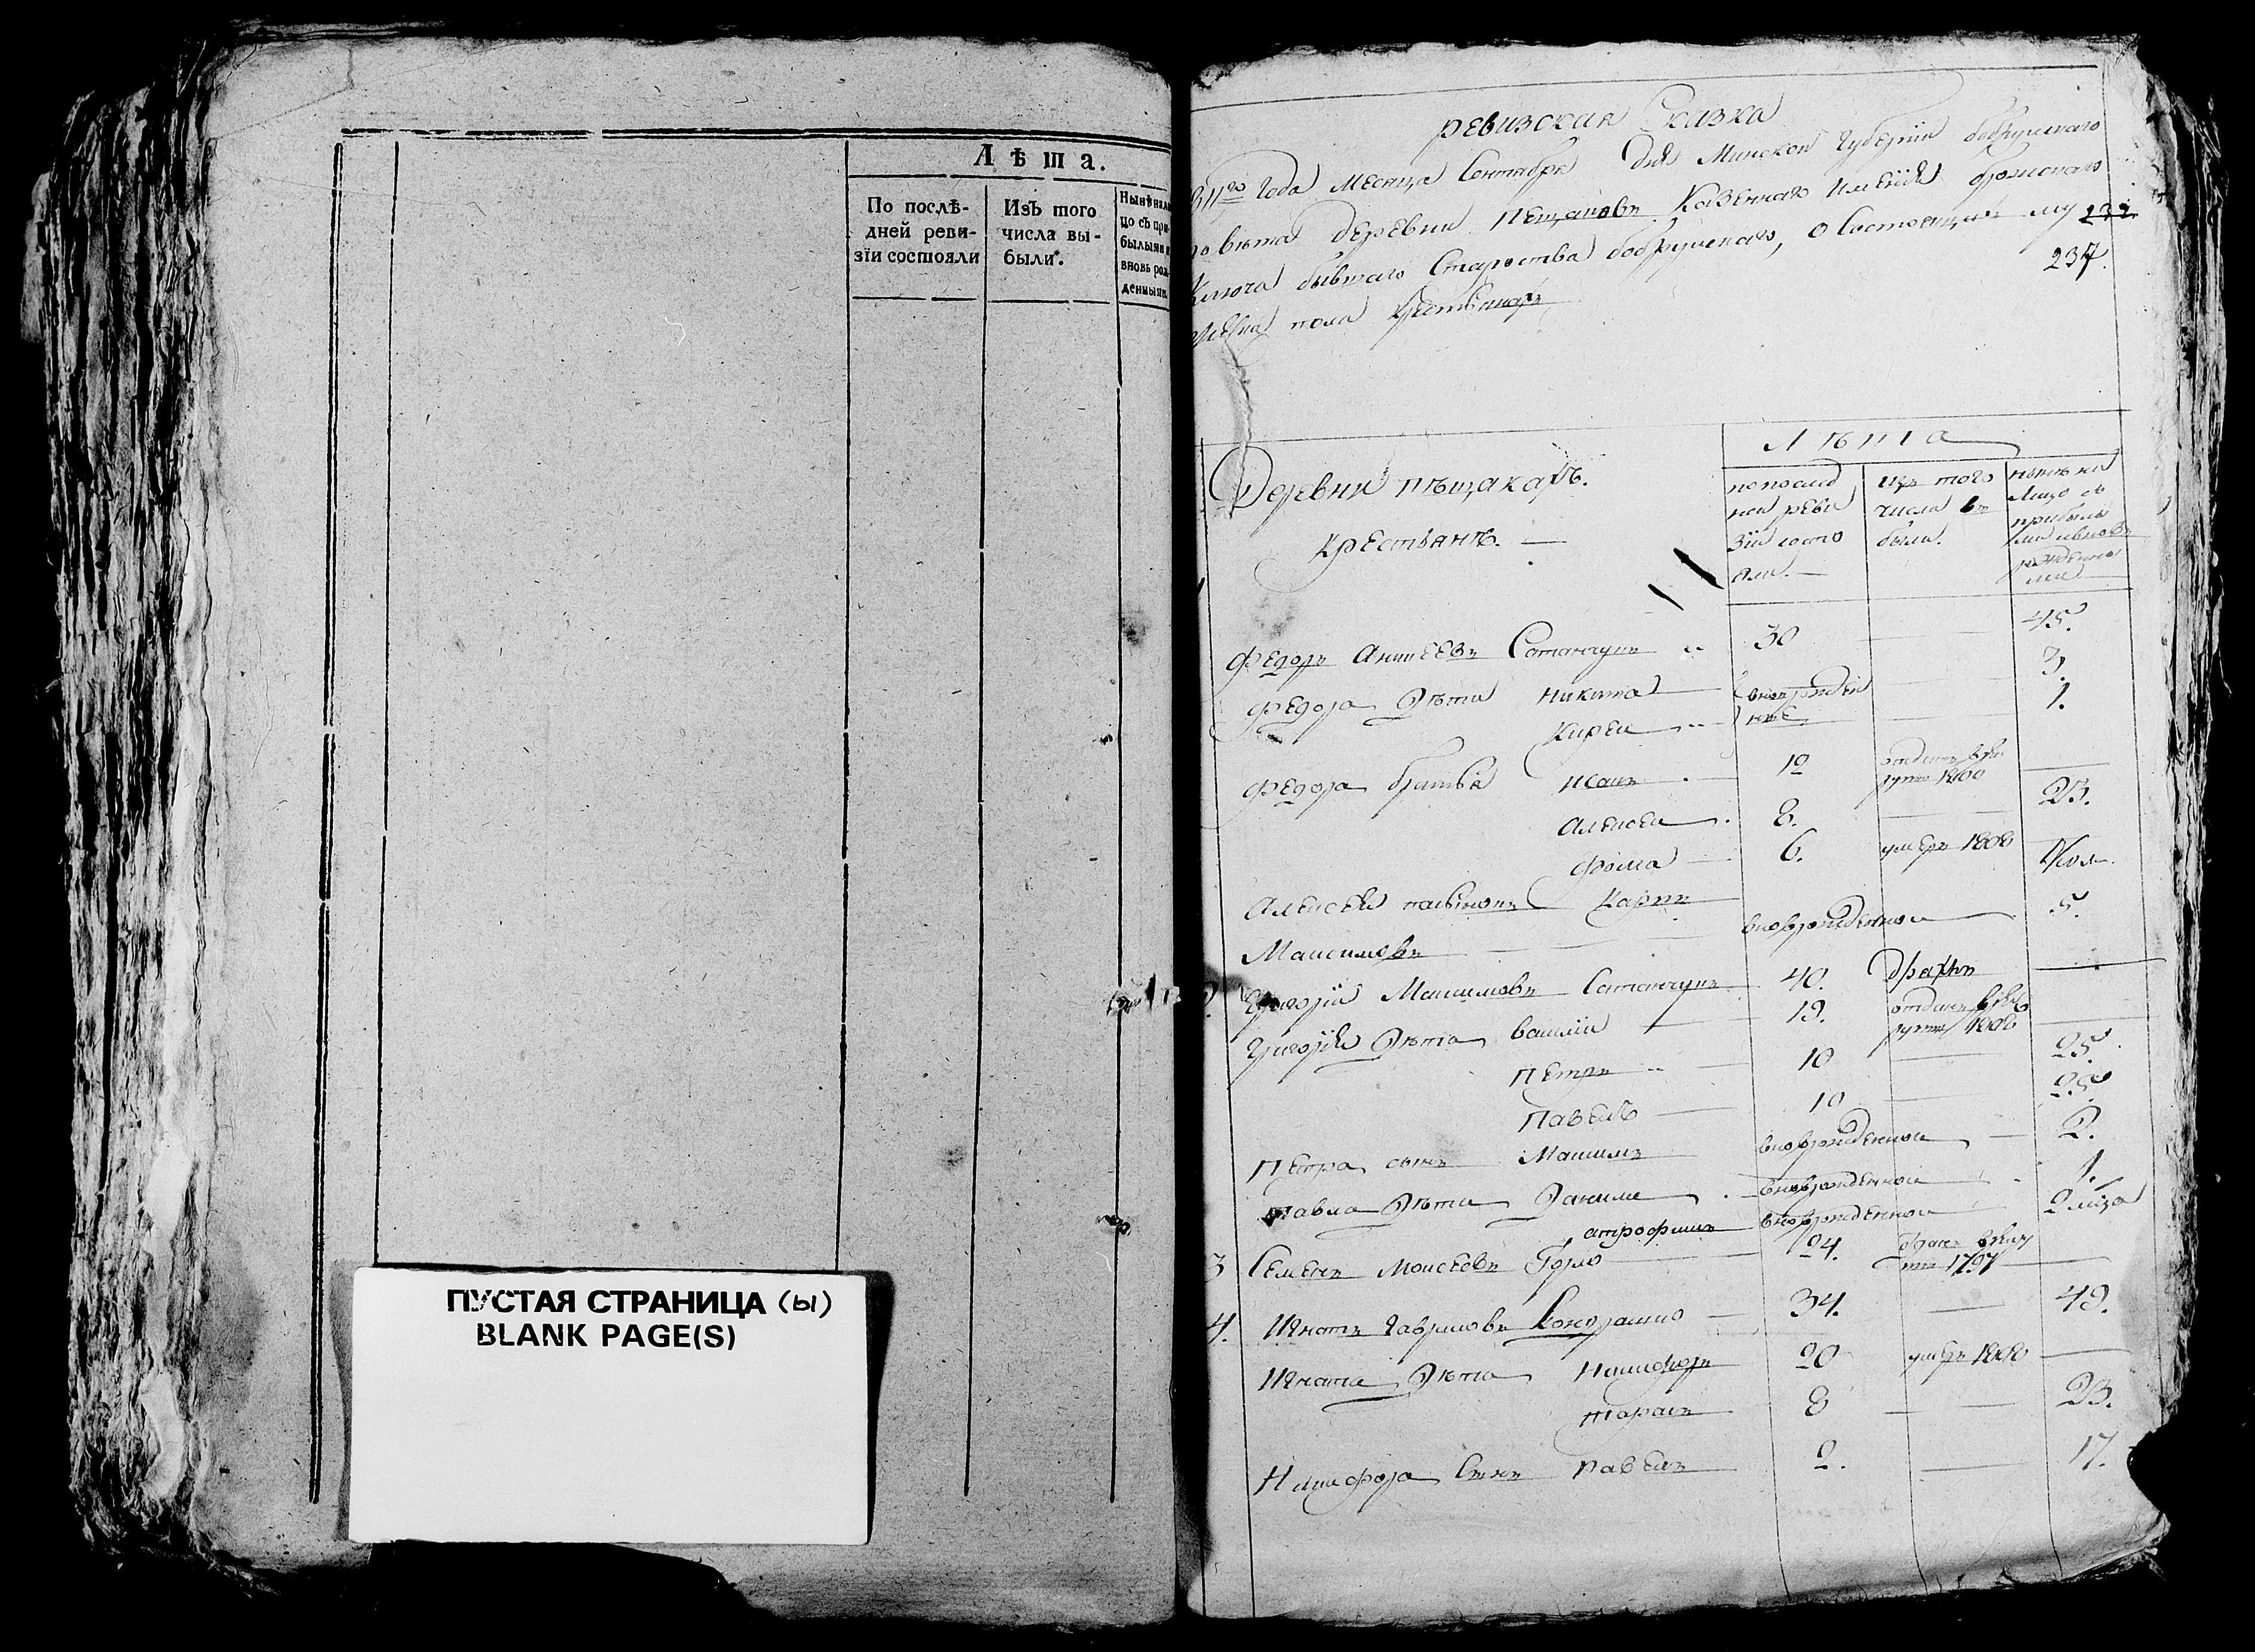 Лѣта.
По послѣ-
дней реви-
зїи состояли
Изъ того
числа вы-
были.
Нынѣ на ли-
цо съ при-
былыми и
вновь рож-
денными.
ПУСТАЯ СТРАНИЦА (ы)
BLANK PAGE(S)
ревизская Сказка
1811го года Месяца Сентября дня Минской губернїи бобруйскаго
повѣта деревни Пещаковъ Казеннаго имѣнїя
Ключа бывшаго Староства бобруйскаго, о Состоящихъ му
232
237.
пола Крестьянахъ
Лѣта
Деревни пѣщакахъ.
Крестьянъ.
попослед
ней реви
зїи состо
яли.
изъ того
числа вы
были.
нынѣ на
лицо съ
прибылы
ми ивновь
рожденны
ми
Федоръ 30 45.
Федора дѣти никита вновьрожден 3.
Кирей ные 1.
Федора братья исакъ 12 отданъ врек
руты 1800
Алексей 8. 23.
Фома 6. умеръ 1808
Алексея Карпъ
Максимовъ вновьрожденной 5.
Григорїй Максимовъ 40.
Григорїя дѣти василїй 19. отданъ врек
руты 1808
Петръ 10 25.
Павелъ 10 25
Петра сынъ Максимъ вновьрожденной 2.
Павла дѣти Данило вновьрожденной 1.
атрофимъ вновьрожденной 2 м:ца
3 Семенъ Моисеевъ Горло 24. отданъ врекру
ты 1797
4. Игнатъ гавриловъ 34. 49.
Игната дѣти Никифоръ 20 умеръ 1808
тарасъ 8 23.
Никифора Сынъ Павелъ 2. 17.